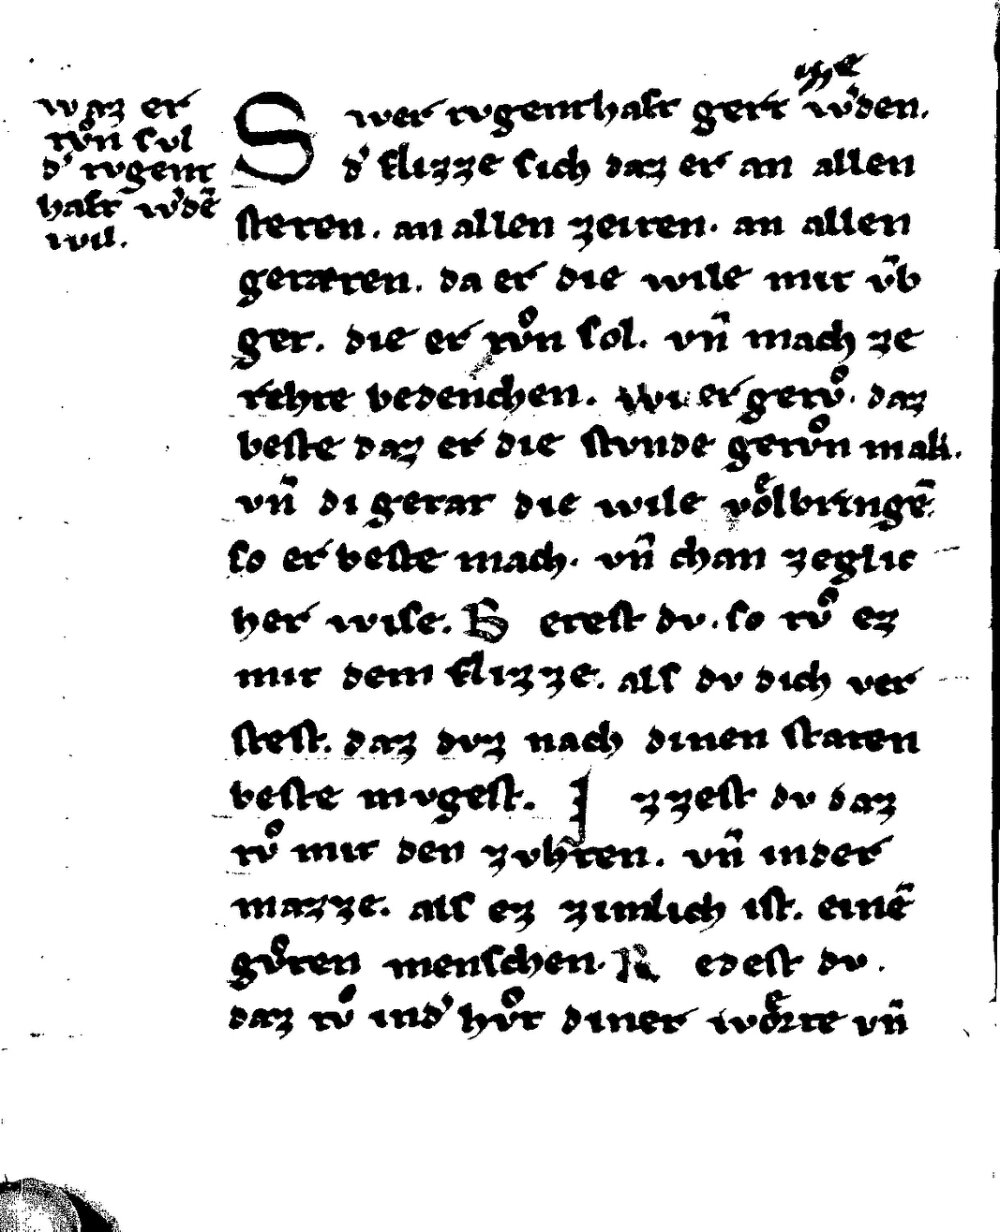 waz er
tvͦn sol
d' tvgent
haft w'dē
wil.
Swer tvgenthaft gert w'den.
d' flizze sich daz er an allen
steten. an allen zeiten. an allen
getæten. da er die wile mit v̄b
get. die er tvͦn sol. vn̄ mach ze
rehte bedenchen. Wi er getvͦ. daz
beste daz er die stvnde getvͦn mak.
vn̄ di getat die wile voͤlbringē.
so er beste mach. vn̄ chan zeglic
her wise. Betest dv. so tvͦ ez
mit dem flizze. als dv dich ver
stest. daz dvz nach dinen staten
beste mvgest. Izzest dv daz
tvͦ mit den zvhten. vn̄ inder
mazze. als ez zimlich ist. einē
gvͦten menschen. Redest dv.
daz tvͦ ind' hvͦt diner woͤrte vn̄